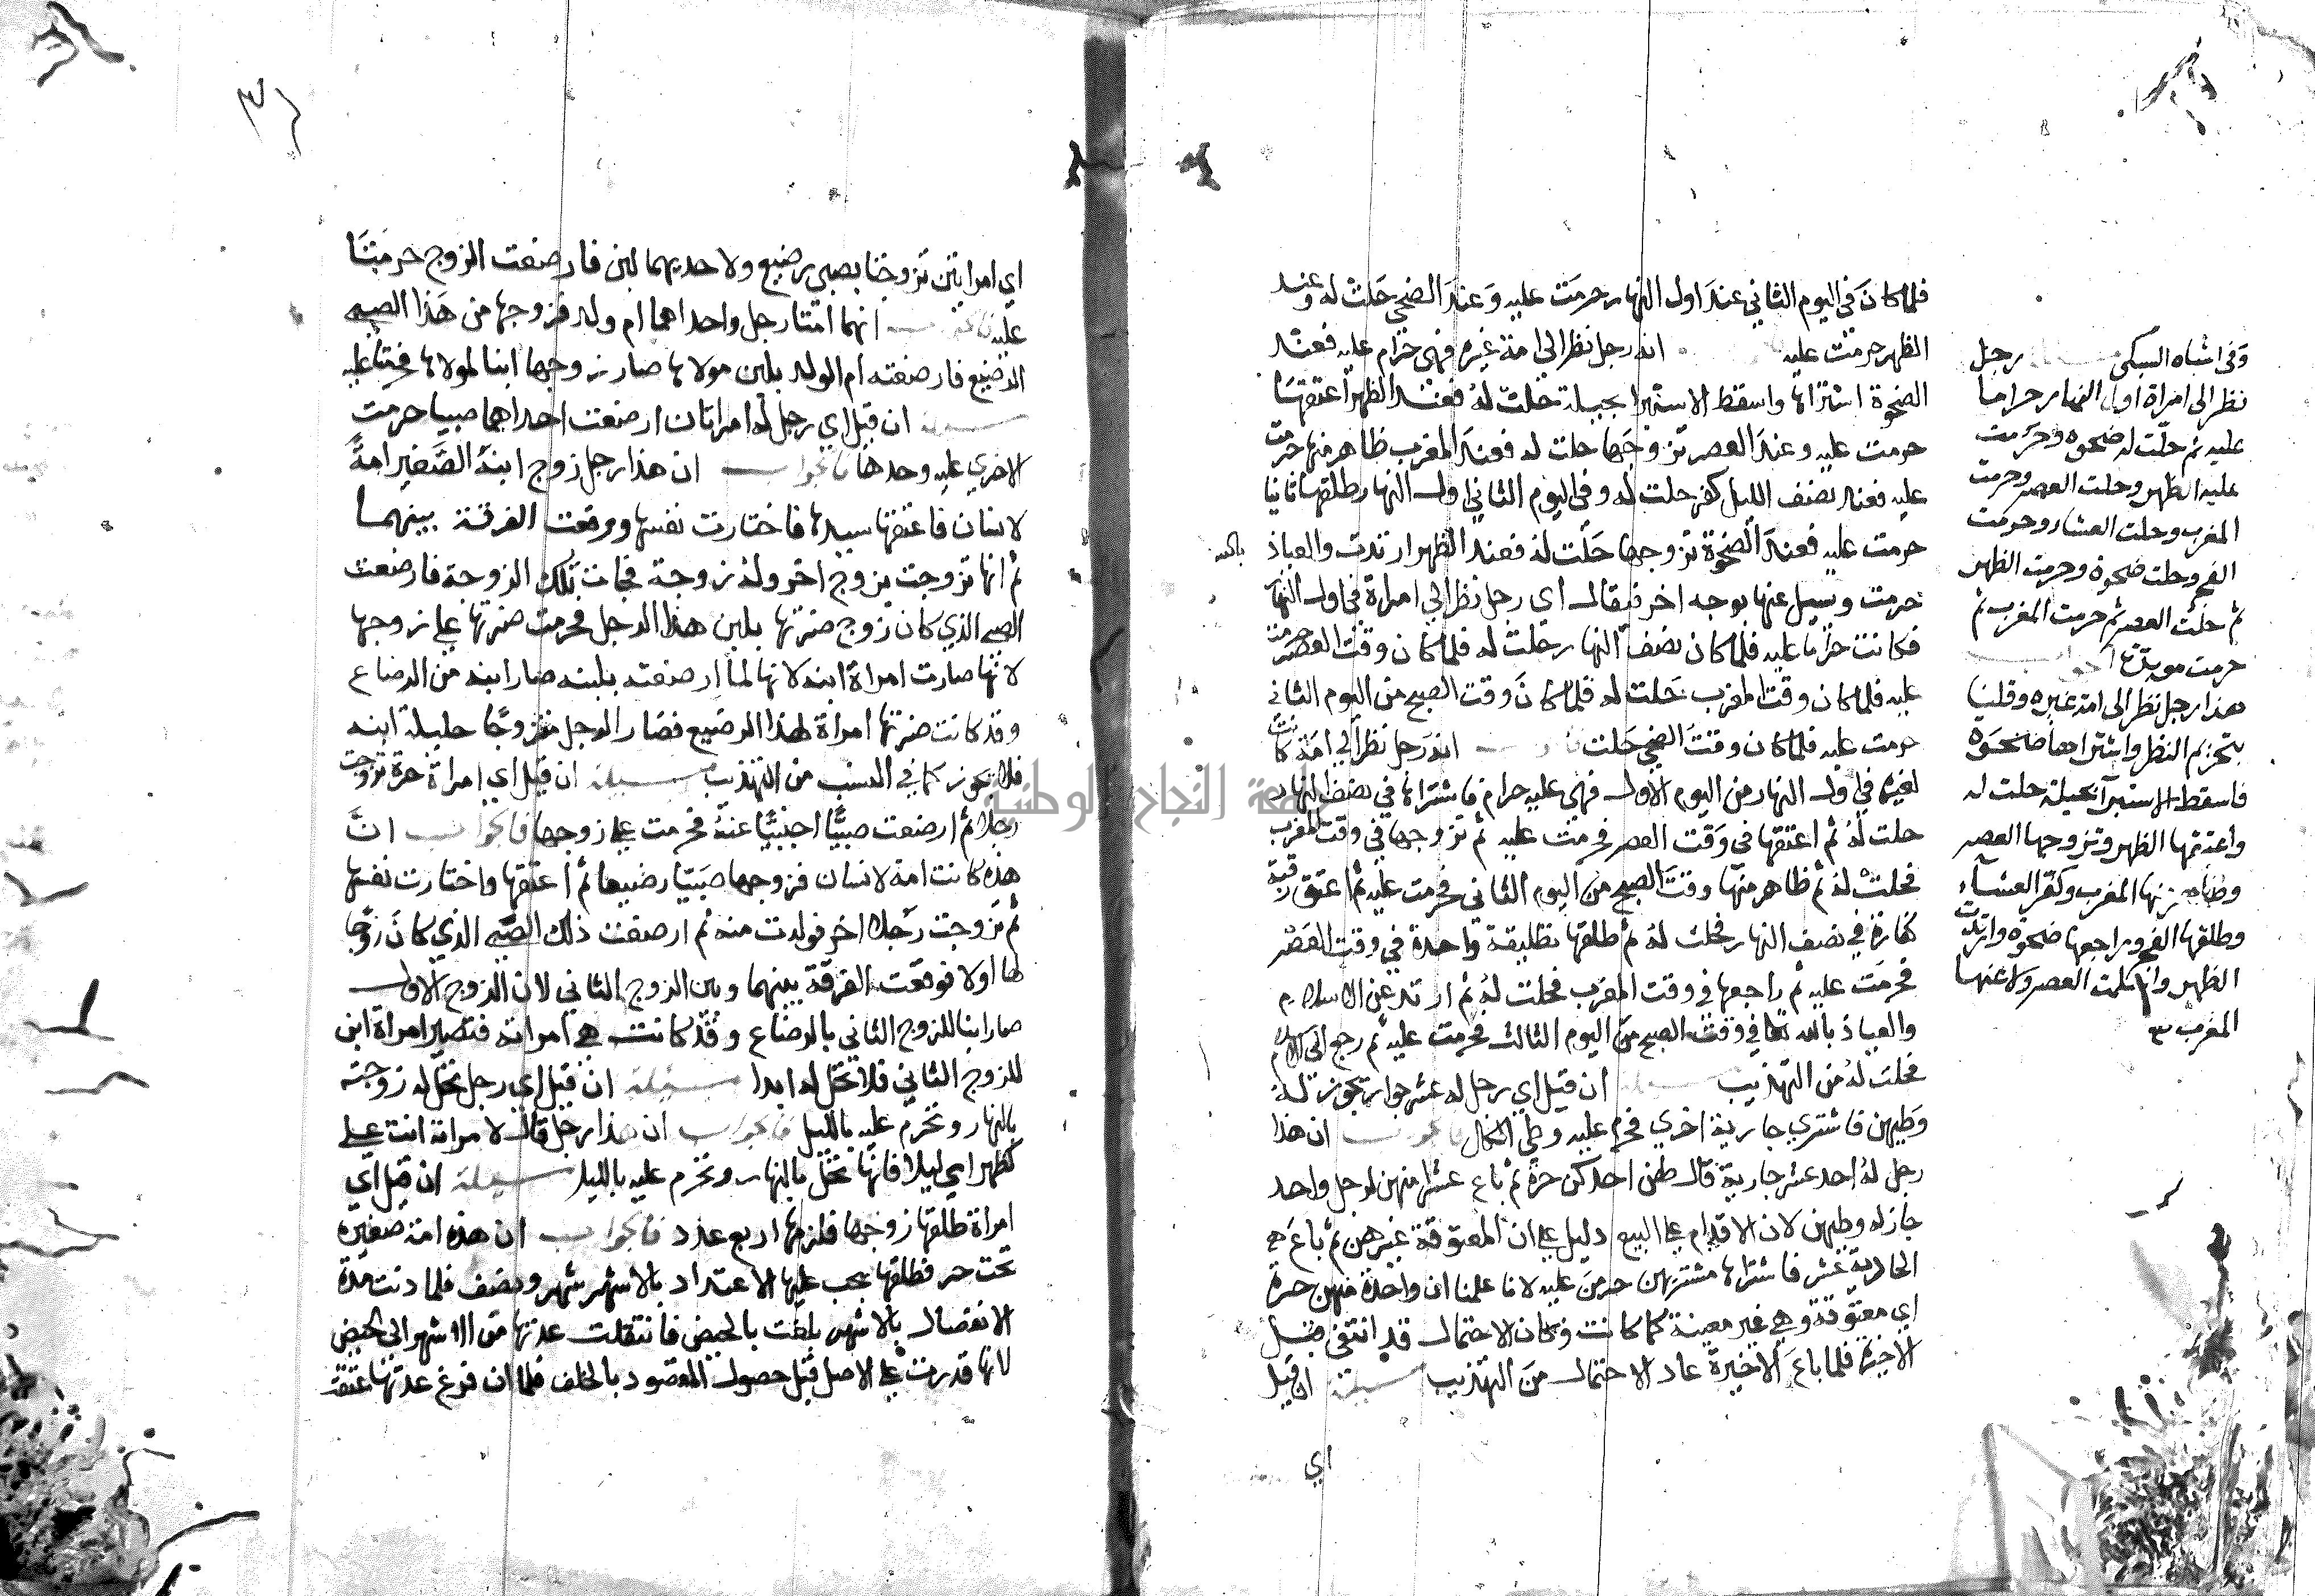 فلما كان في اليوم الثاني عند اول النهار حرمت عليه وعند الضحي حلت له وعند
الظهر حرمت عليه انه رجل نظر الي امة غيره فهي حرام عليه فعند
الضحوة اشتراها واسقط الاستبرا بحيلة تحلت له فعند الظهر اعتقها
حرمت عليه وعند العصر تزوجها حلت له فعند المغرب ظاهر منها حرمت
عليه فعند نصف الليل كفر حلت له وفي اليوم الثاني اول النهار طلقها ثانيا
حرمت عليه فعند الضحوة تزوجها حلت له فعند الظهر ارتدت والعياذ بالله
حرمت وسيل عنها بوجه اخر فيقال اي رجل نظر الي امراة في اول النهار
فكانت حراما عليه فلما كان نصف النهار حلت له فلما كان وقت العصر حرمت
عليه فلما كان وقت المغرب حلت له فلما كان وقت الصبح من اليوم الثاني
حرمت عليه فلما كان وقت الضحي حلت انه رجل نظر الي امة كانت
لغيره في اول النهار من اليوم الاول فهي عليه حرام فاشتراها في نصف النهار
حلت له ثم اعتقها في وقت العصر فحرمت عليه ثم تزوجها في وقت المغرب
فحلت له ثم ظاهر منها وقت الصبح من اليوم الثاني فحرمت عليه ثم اعتق رقبة
كفارة في نصف النهار فحلت له ثم طلقها تطليقة واحدة في وقت العصر
فحرمت عليه ثم راجعها في وقت المغرب فحلت له ثم ارتد عن الاسلام
والعياذ بالله تعا في وقت الصبح من اليوم الثالث فحرمت عليه ثم رجع الي الاسلام
فحلت له من التهذيب مسيلة ان قيل اي رجل له عشر جوار تجوز له
وطيهن فاشتري جارية اخري فحرم عليه وطي الكل فالجواب ان هذا
رجل له احد عشر جارية قال لهن احدكن حرة ثم باع عشرا منهن لرجل واحد
جاز له وطيهن لان الاقدام علي البيع دليل علي ان المعتوقة غيرهن ثم باع
الحادية عشر فاشتراها مشتريهن حرمن عليه لانا علمنا ان واحدة منهن حرة
اي معتوقة وهي غير معينة كما كانت وكان الاحتمال قد انتفي قبل
الاخيرة فلما باع الاخيرة عاد الاحتمال من التهذيب مسيلة ان قيل
اي
وفي اشباه السبكي رجل
نظر الي امراة اول النهار حراما
عليه ثم حلت له ضحوه وحرمت
عليه الظهر وحلت العصر وحرمت
المغرب وحلت العشاء وحرمت
الفجر وحلت ضحوة وحرمت الظهر
ثم حلت العصر ثم حرمت المغرب ثم
حرمت موبدا الجواب
هذا رجل نظر الي امة غيره وقلنا
بتحريم النظر واشتراها ضحوه
فاسقط الاستبرآ بحيلة حلت له
واعتقها الظهر وتزوجها العصر
وظاهر منها المغرب وكفر العشاء
وطلقها الفجر وراجعها ضحوة وارتدت
الظهر واسلمت العصر ولاعنها
المغرب
اي امراتين تزوجتا بصبي رضيع ولاحديهما لبن فارضعت الزوج حرمتا
عليه فالجواب انهما امتا رجل واحداهما ام ولد فزوجها من هذا الصبي
الرضيع فارضعته ام الولد بلبن مولاها صار زوجها ابنا لمولاها فحرمتا عليه
مسيلة ان قيل اي رجل له امراتان ارضعت احداهما صبيا حرمت
الاخري عليه وحدها فالجواب ان هذا رجل زوج ابنه الصغير امة
لانسان فاعتقها سيدها فاختارت نفسها ووقعت الفرقة بينهما
ثم انها تزوجت بزوج اخر وله زوجة فجات تلك الزوجة فارضعت
الصبي الذي كان زوج ضرتها بلبن هذا الرجل فحرمت ضرتها علي زوجها
لانها صارت امراة ابنه لانها لما ارضعته بلبنه صار ابنه من الرضاع
وقد كانت ضرتها امراة لهذا الرضيع فصار الرجل متزوجا حليلة ابنه
فلا يجوز كما في النسب من التهذيب مسيلة ان قيل اي امراة حرة تزوجت
رجلا ثم ارضعت صبيا اجنبيا عنه فحرمت علي زوجها فالجواب ان
هذه كانت امة لانسان فزوجها صبيا رضيعا ثم اعتقها واختارت نفسها
ثم تزوجت رجلا اخر فولدت منه ثم ارضعت ذلك الصبي الذي كان زوجا
لها اولا فوقعت الفرقة بينهما وبين الزوج الثاني لان الزوج الاول
صار ابنا للزوج الثاني بالرضاع وقد كانت هي امراته فتصير امراة ابن
للزوج الثاني فلا تحل له ابدا مسيلة ان قيل اي رجل تحل له زوجته
بالنهار وتحرم عليه بالليل فالجواب ان هذا رجل قال لامراته انت علي
كظهر امي ليلا فانها تحل بالنهار وتحرم عليه بالليل مسيلة ان قيل اي
امراة طلقها زوجها فلزمها اربع عدد فالجواب ان هذه امة صغيره
تحت حر فطلقها يجب عليها الاعتداد بالاشهر شهر ونصف فلما دنت مدة
الانفصال بالاشهر بلغت بالحيض فانتقلت عدتها من الاشهر الي الحيض
لانها قدرت علي الاصل قبل حصول المقصود بالخلف فلما ان فرغ عدتها عتقت
جامعة النجاح الوطنية